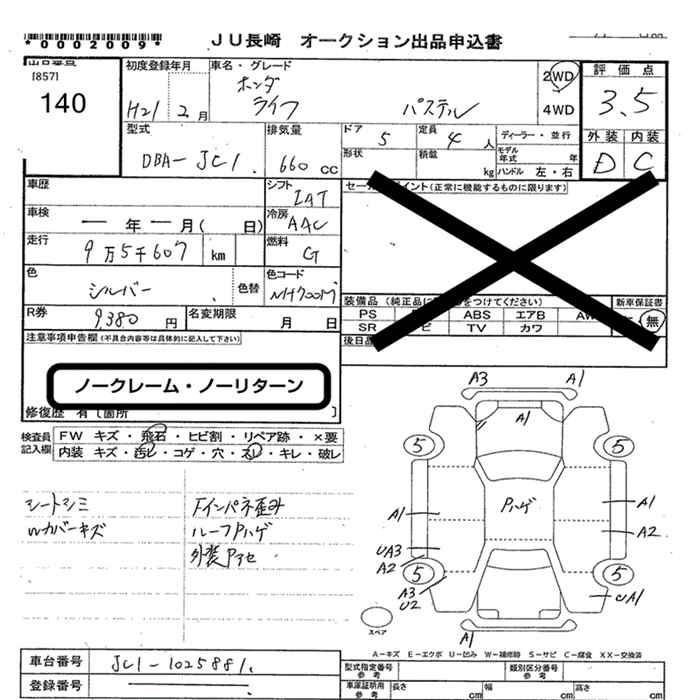 *0002009*
JU長崎 オークション出品申込書
[857]
140
初度登録年月
H21 2月
車名・グレード
ホンダ
ライフ パステル
2WD
4WD
評価点
3.5
外装 内装
D C
型式
DBA-JC1
排気量
660 cc
ドア 5
定員 4人
ディーラー・並行
形状
積載 kg
モデル年式 年
ハンドル 左・右
車歴
シフト
IAT
車検
ー年ー月( 日)
冷房
AAC
走行
9万5千607 km
燃料
G
色
シルバー
色替
色コード
NH700M
R券
9,380 円
名変期限
月 日
セールスポイント(正常に機能するものに限ります)
装備品
PS ABS エアB AW
SR TV カワ
新車保証書
無
後日品
注意事項申告欄(不具合内容等は具体的に記入して下さい)
ノークレーム・ノーリターン
修復歴 有〔箇所 〕
検査員
記入欄
FW キズ・飛石・ヒビ割・リペア跡・×要
内装 キズ・汚レ・コゲ・穴・スレ・キレ・破レ
シートシミ
Wカバーキズ
Fインパネ歪み
ルーフPハゲ
外装Pアセ
A3 A1
A1
5 5
Pハゲ
A1 A1
A2
UA3
A2
5 5
A3
U2
UA1
A1
スペア
A-キズ E-エクボ U-凹み W-補修跡 S-サビ C-腐食 XX-交換済
車台番号
JC1-1025881.
登録番号
型式指定番号
参考
類別区分番号
参考
車庫証明用
参考
長さ cm 幅 cm 高さ cm